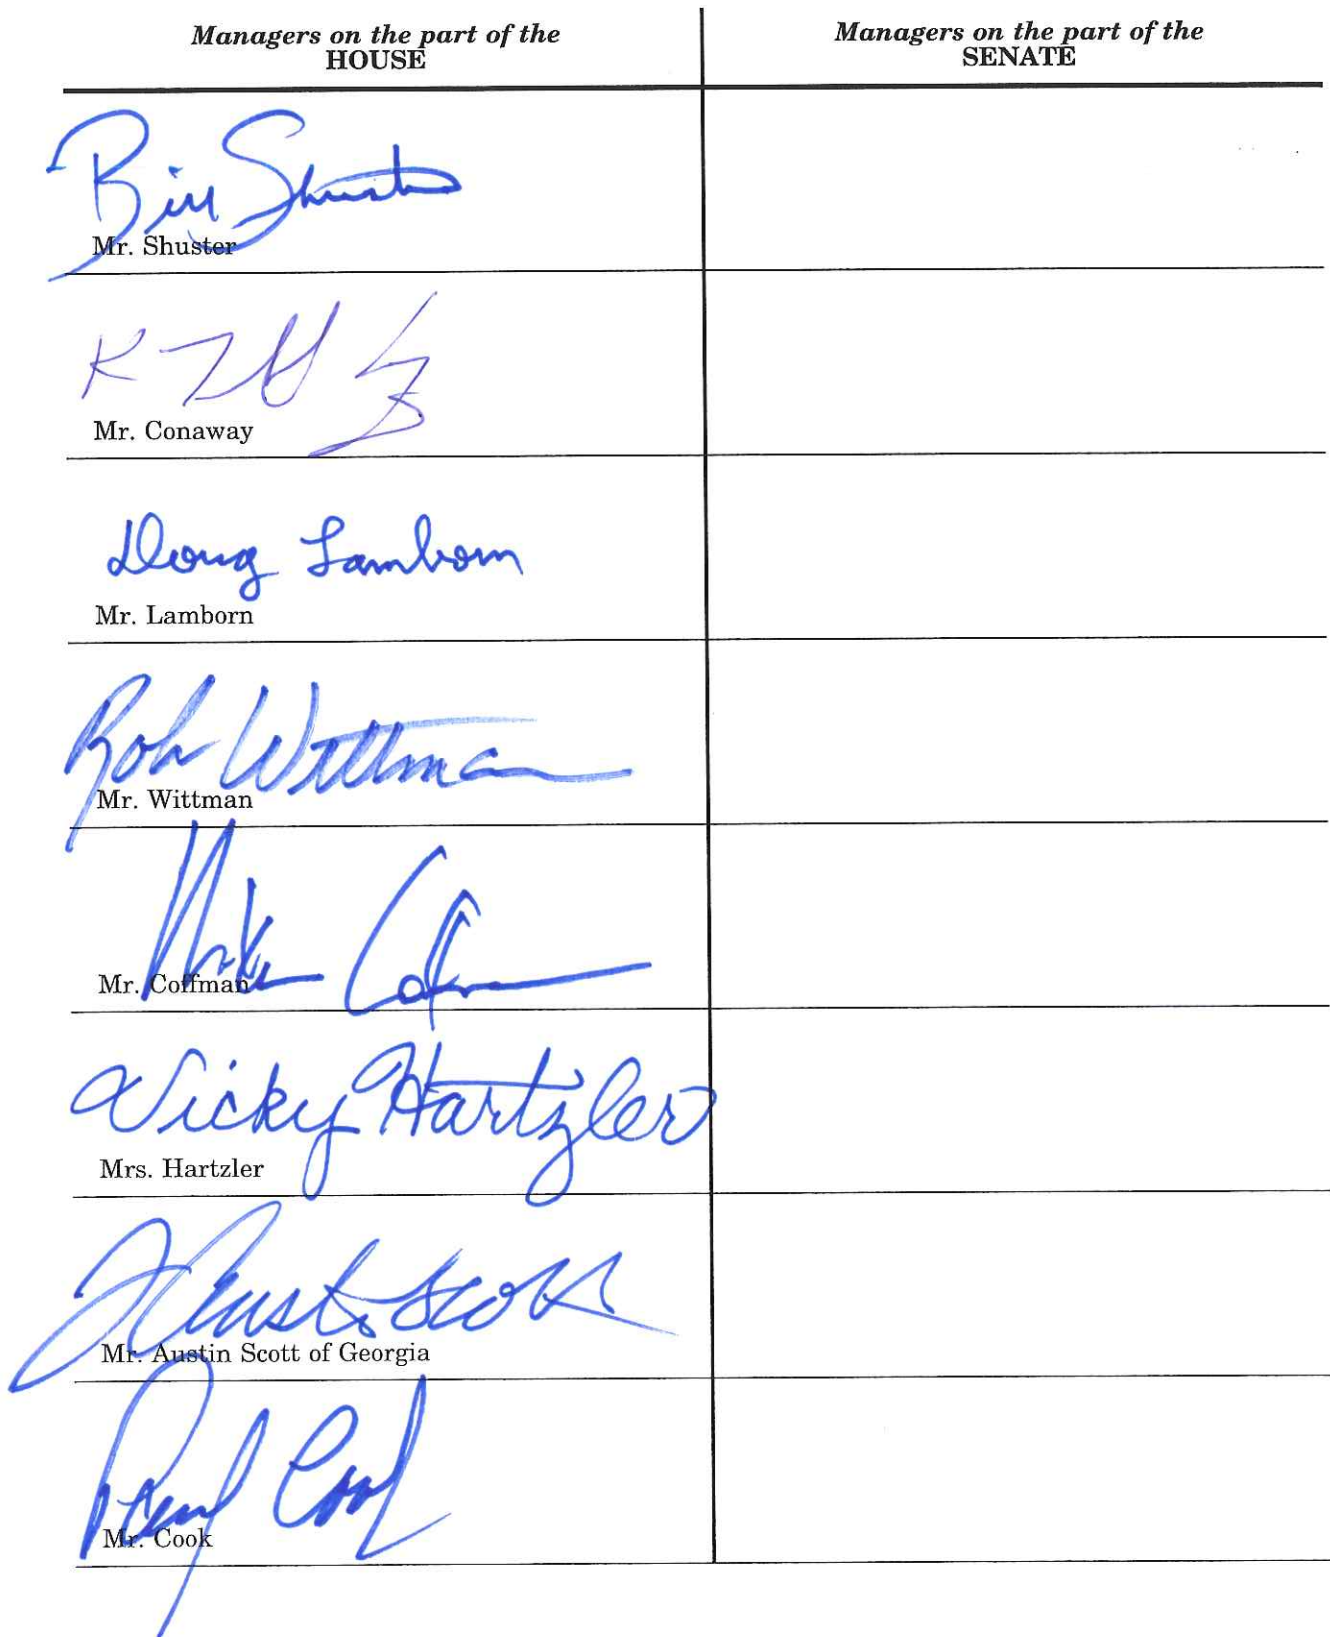 Managers on the part of the
HOUSE
Managers on the part of the
SENATE
Bill Shuster
Mr. Shuster
Mr. Conaway
Doug Lamborn
Mr. Lamborn
Rob Wittman
Mr. Wittman
Mike Coffman
Mr. Coffman
Vicky Hartzler
Mrs. Hartzler
Austin Scott
Mr. Austin Scott of Georgia
Paul Cook
Mr. Cook